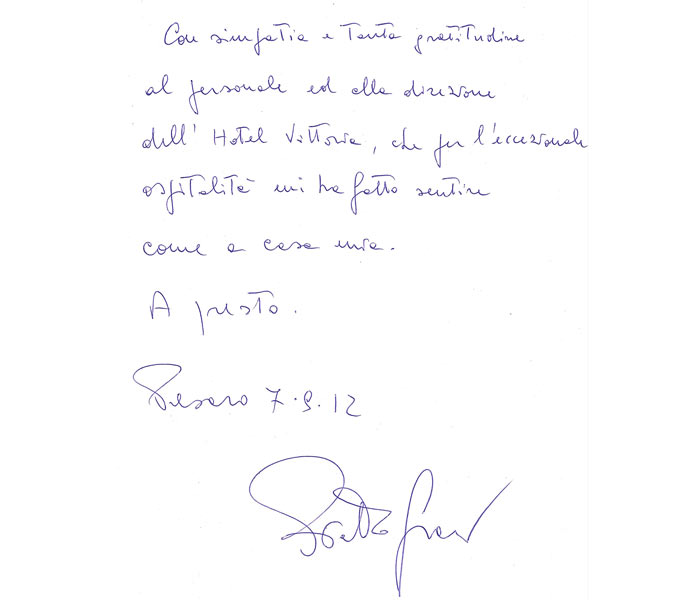 Con simpatia e tanta gratitudine
al personale ed alla direzione
dell' Hotel Vittoria, che per l'eccezionale
ospitalità mi ha fatto sentire
come a casa mia.
A presto.
Pesaro 7.9.12